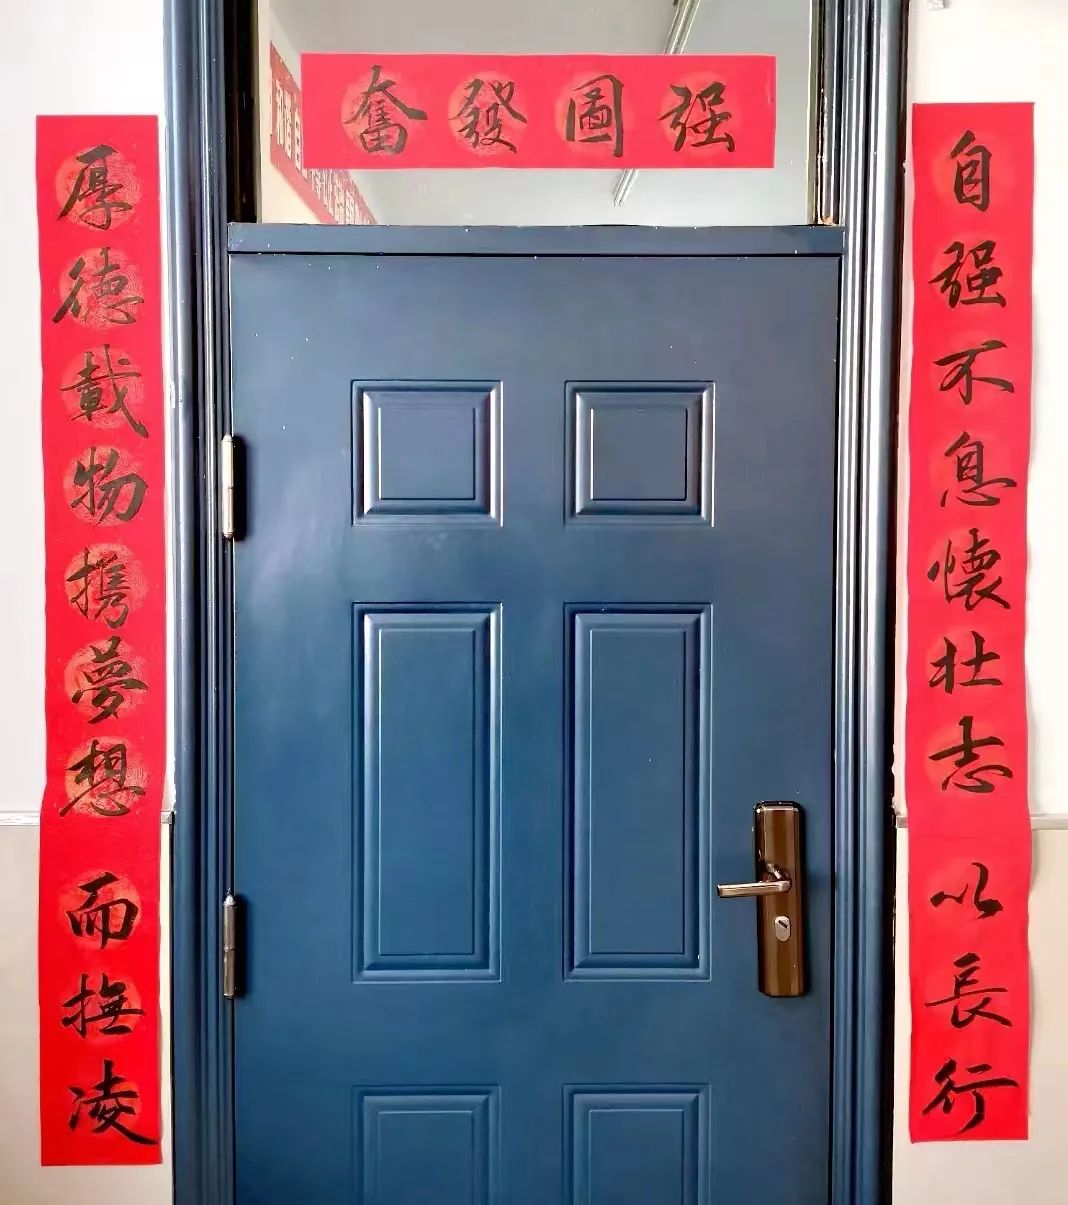 奮發圖强
自强不息懷壯志以長行
厚德載物携夢想而撫凌